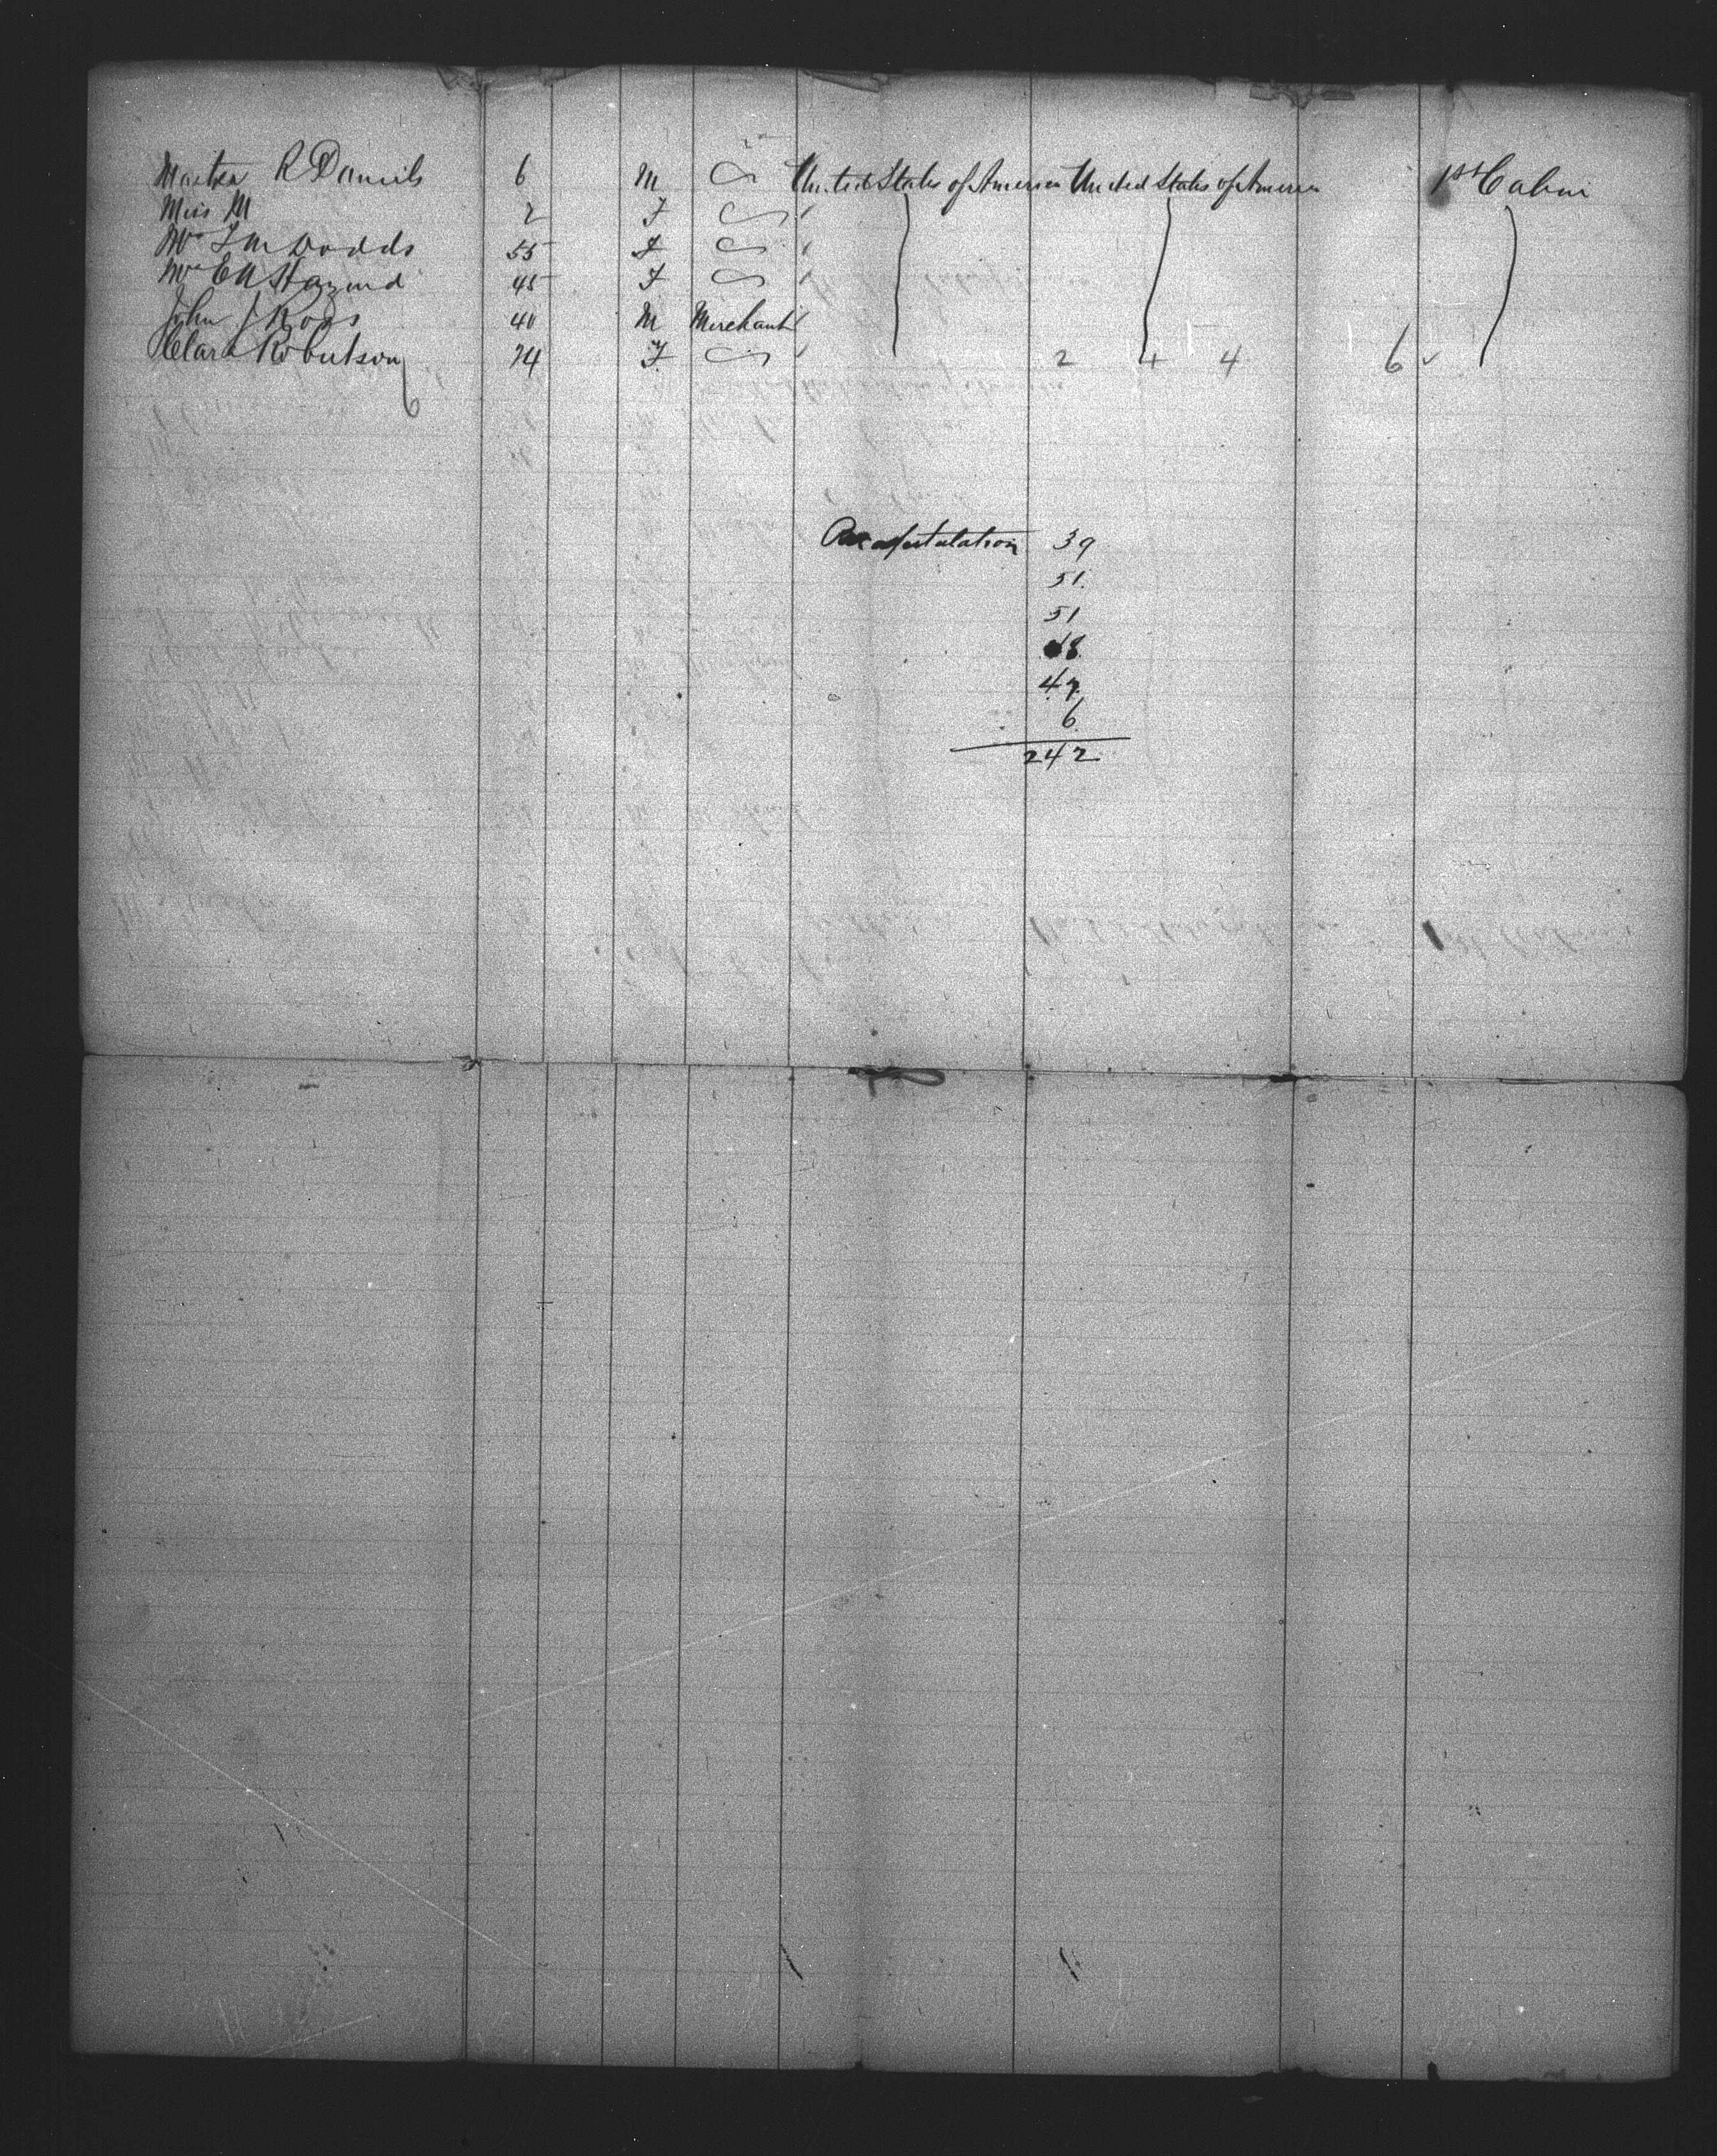 Master R Daniels 6 M United States of America United States of America 1st Cabin
Miss M 2 F "
Mrs J M Dodds 55 F "
Mrs E A 45 F "
John J Ross 40 M Merchant "
Clara Robertson 74 F " 2 4 4 6 ✓
6
Recapitulation 39
51
51
48
47
6
242